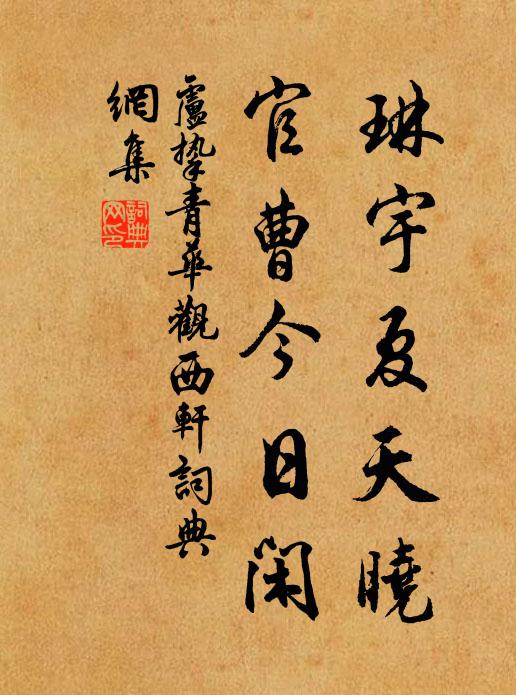 琳宇夏天曉
官曹今日閑
盧摯青華觀西軒詞典
網集
詞典
网印